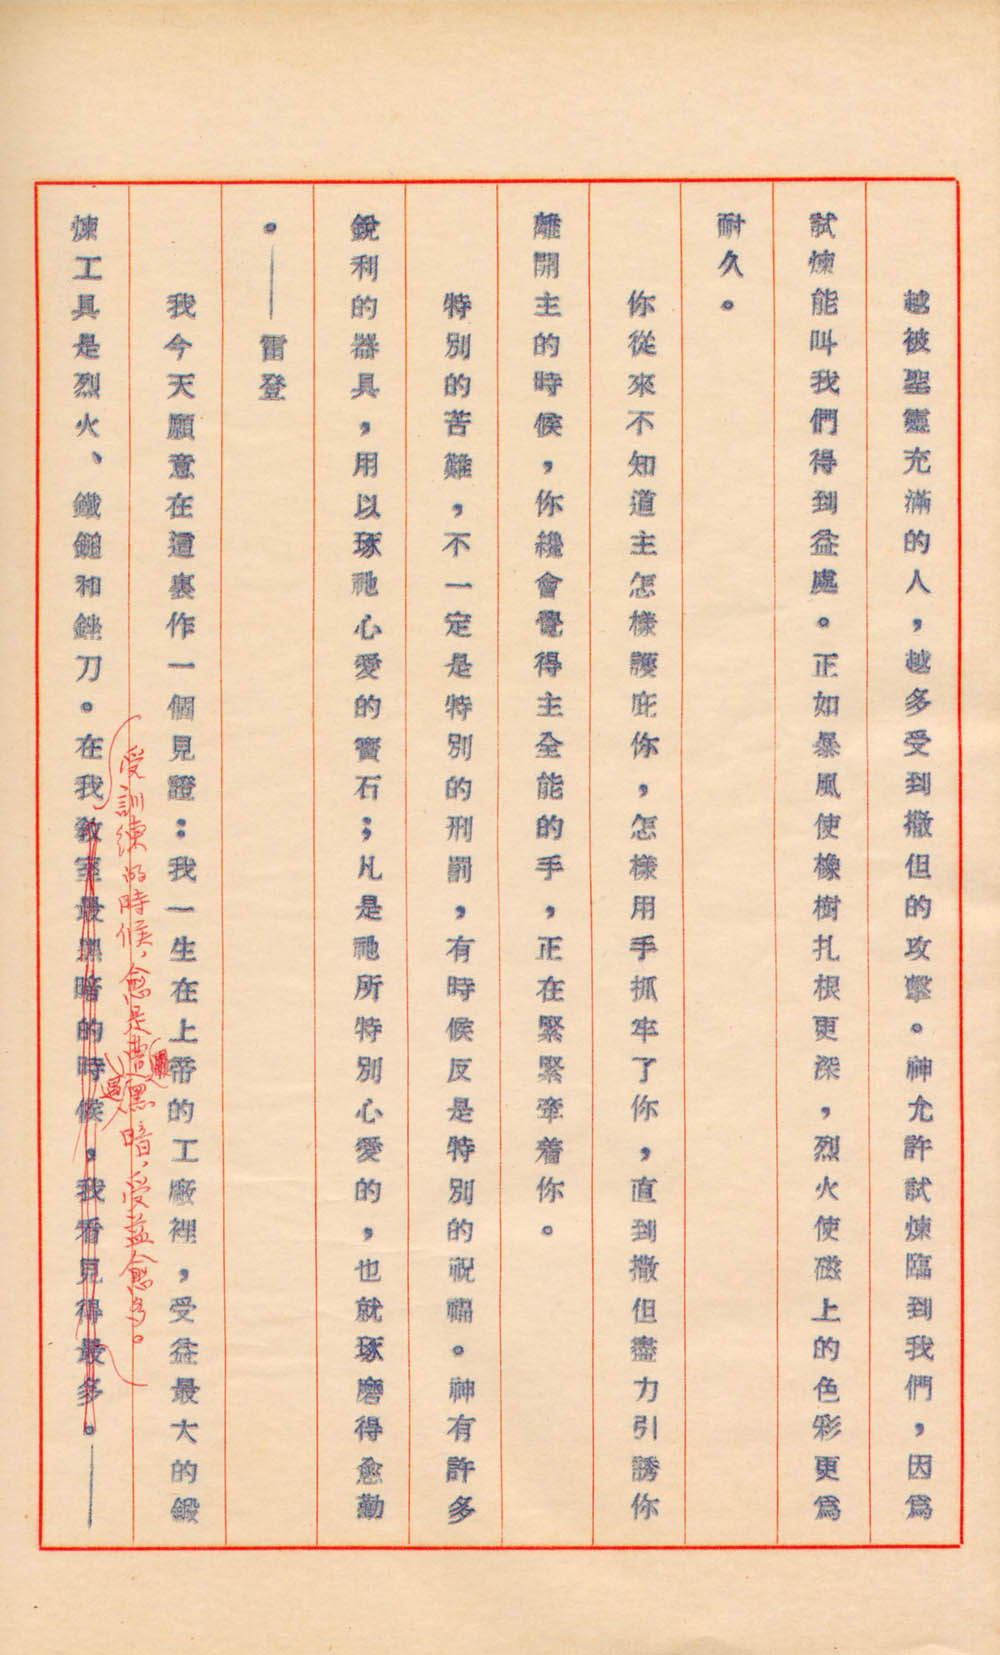 越被聖靈充滿的人，越多受到撒但的攻擊。神允許試煉臨到我們，因爲
試煉能叫我們得到益處。正如暴風使橡樹扎根更深，烈火使磁上的色彩更爲
耐久。
你從來不知道主怎樣護庇你，怎樣用手抓牢了你，直到撒但盡力引誘你
離開主的時候，你纔會覺得主全能的手，正在緊緊牽着你。
特別的苦難，不一定是特別的刑罰，有時候反是特別的祝福。神有許多
銳利的器具，用以琢祂心愛的寶石；凡是祂所特別心愛的，也就琢磨得愈勤
。——雷登
我今天願意在這裏作一個見證：我一生在上帝的工廠裡，受益最大的鍛
受訓練的時候，愈是遭過黑暗，受益愈多。
煉工具是烈火、鐵鎚和銼刀。在我教室最黑暗的時候，我看見得最多。——